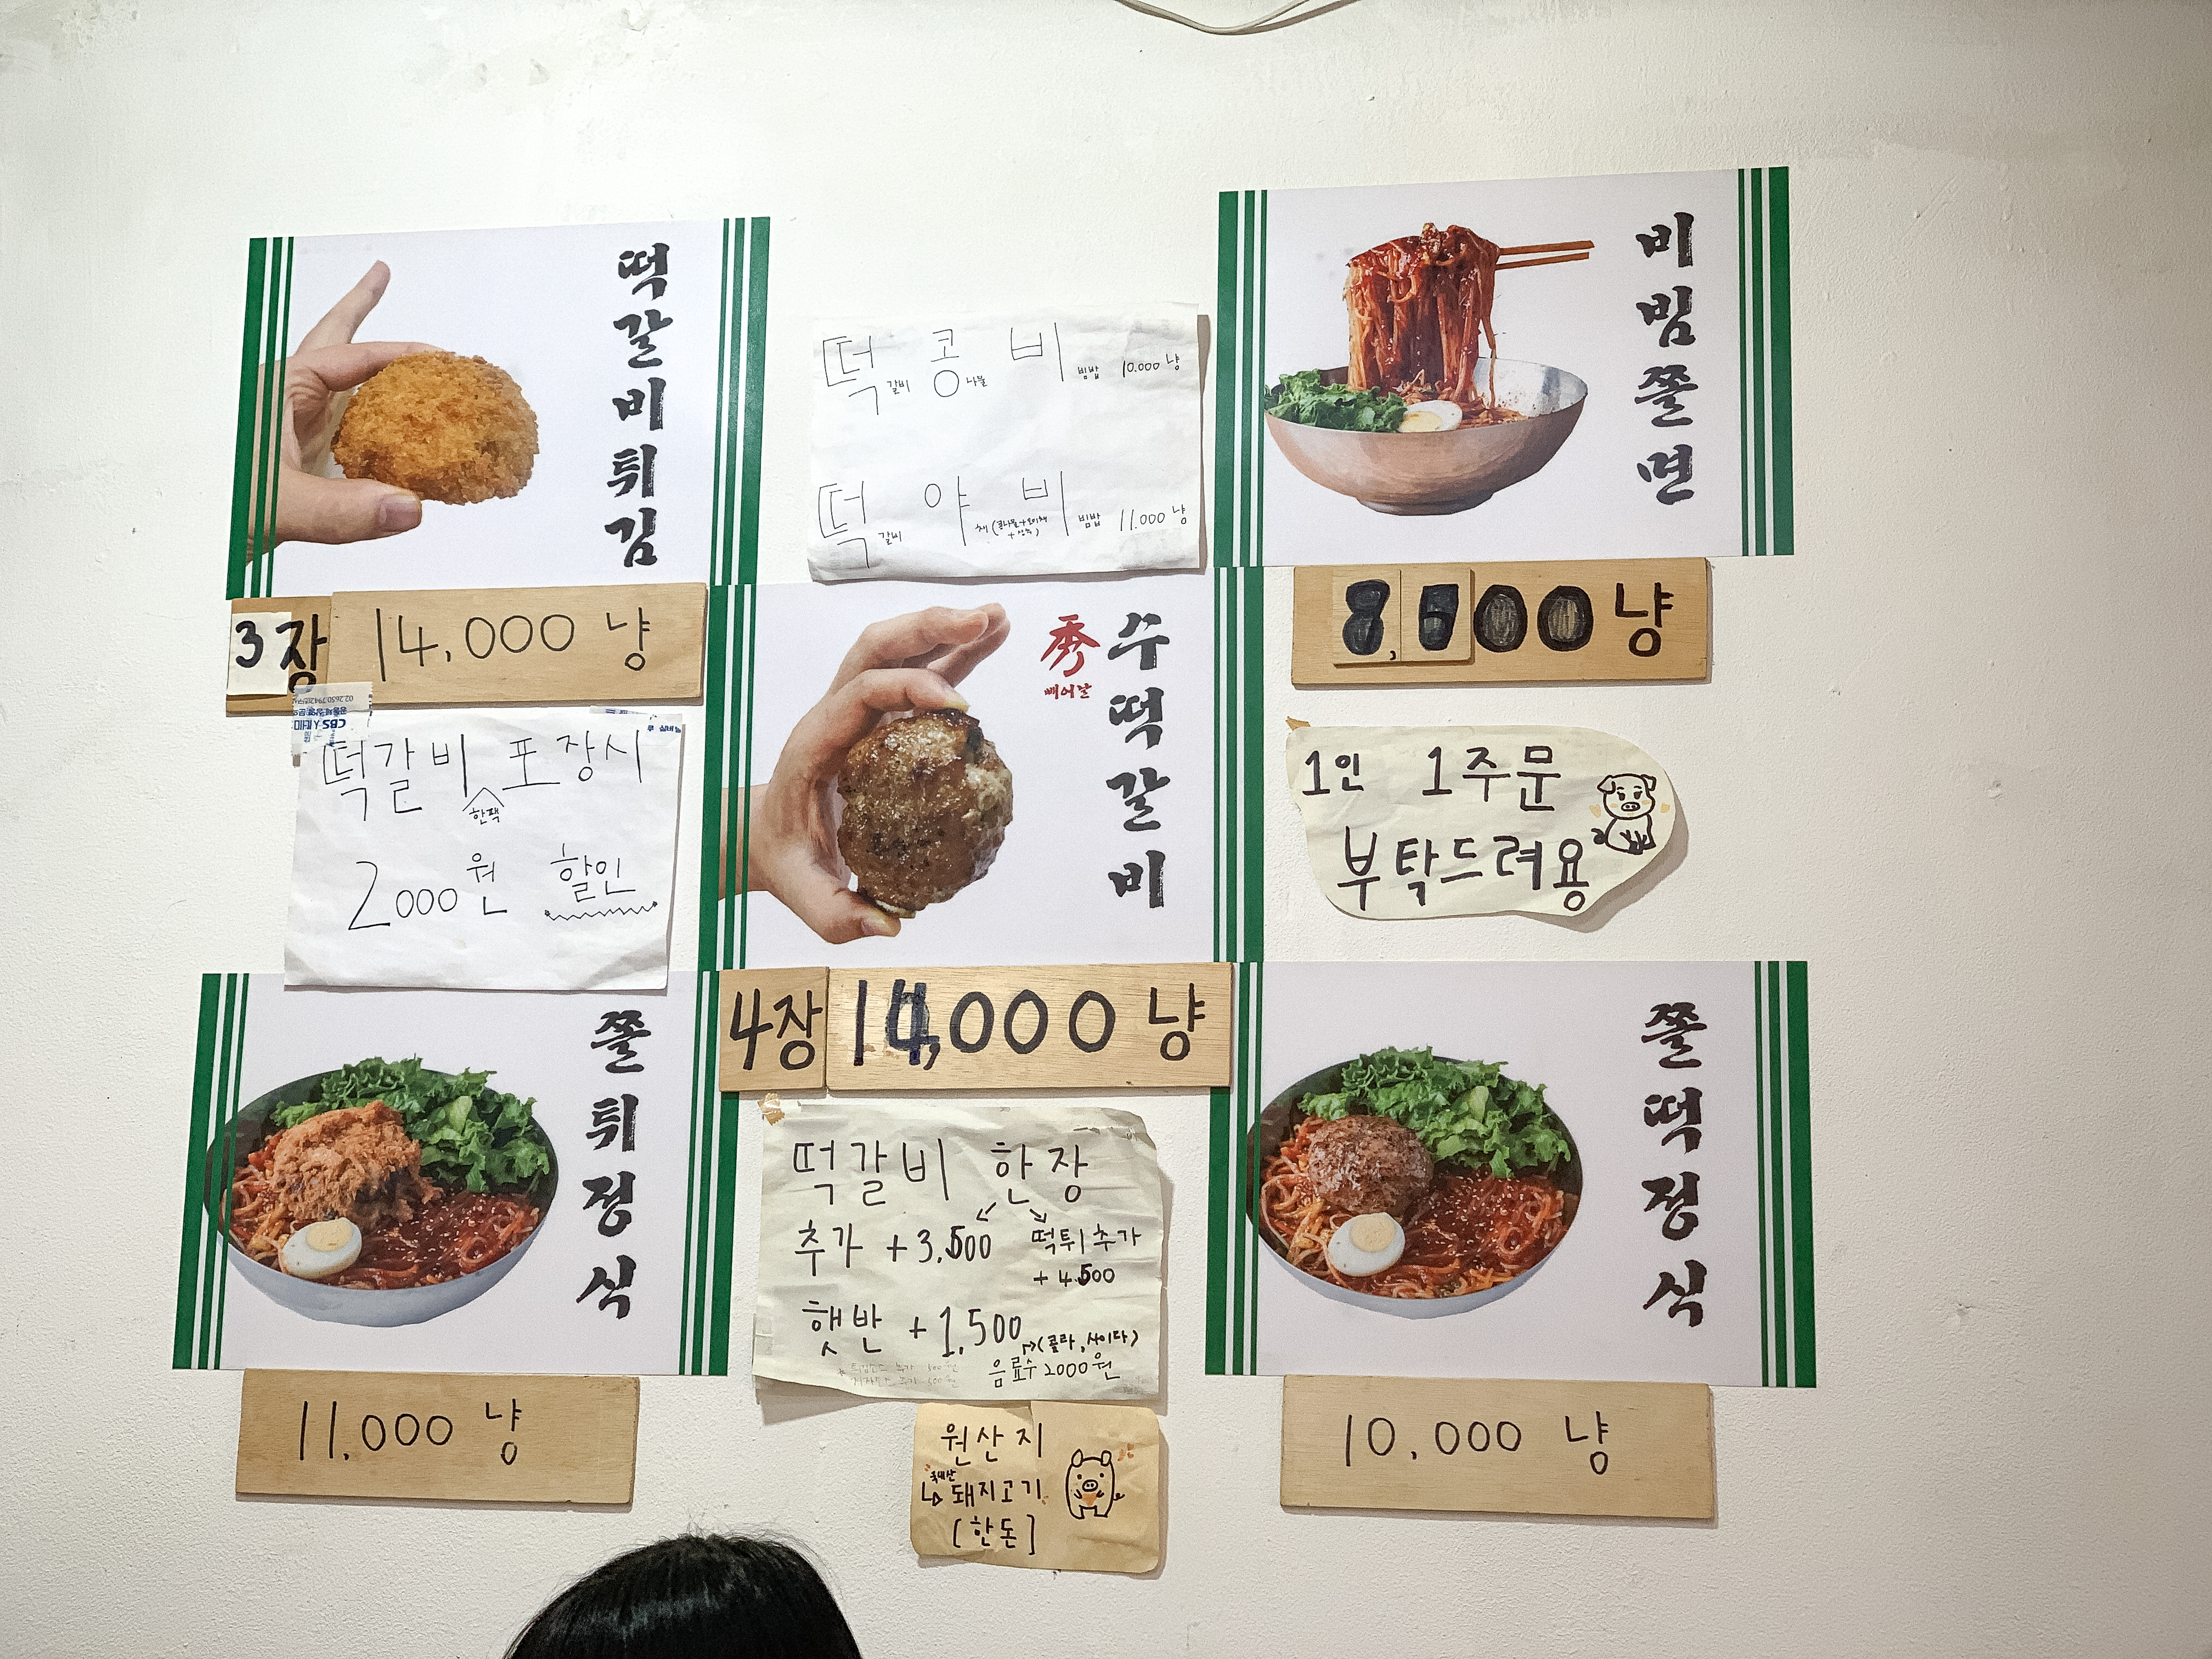 떡갈비튀김
3장 14,000 냥
떡갈비 한팩 포장시
2000원 할인
쫄튀정식
11,000 냥
떡갈비 콩나물 비빔밥 10.000냥
떡갈비 야채(콩나물+오이채
비빔밥 11.000냥
秀
빼어날
수떡갈비
4장 14,000 냥
떡갈비 한장
추가 +3,500
떡튀추가
+4.500
햇반 +1,500
(콜라, 사이다)
음료수 2000원
원산지
국내산
돼지고기
[한돈]
비빔쫄면
8,500냥
1인 1주문
부탁드려용
쫄떡정식
10,000 냥